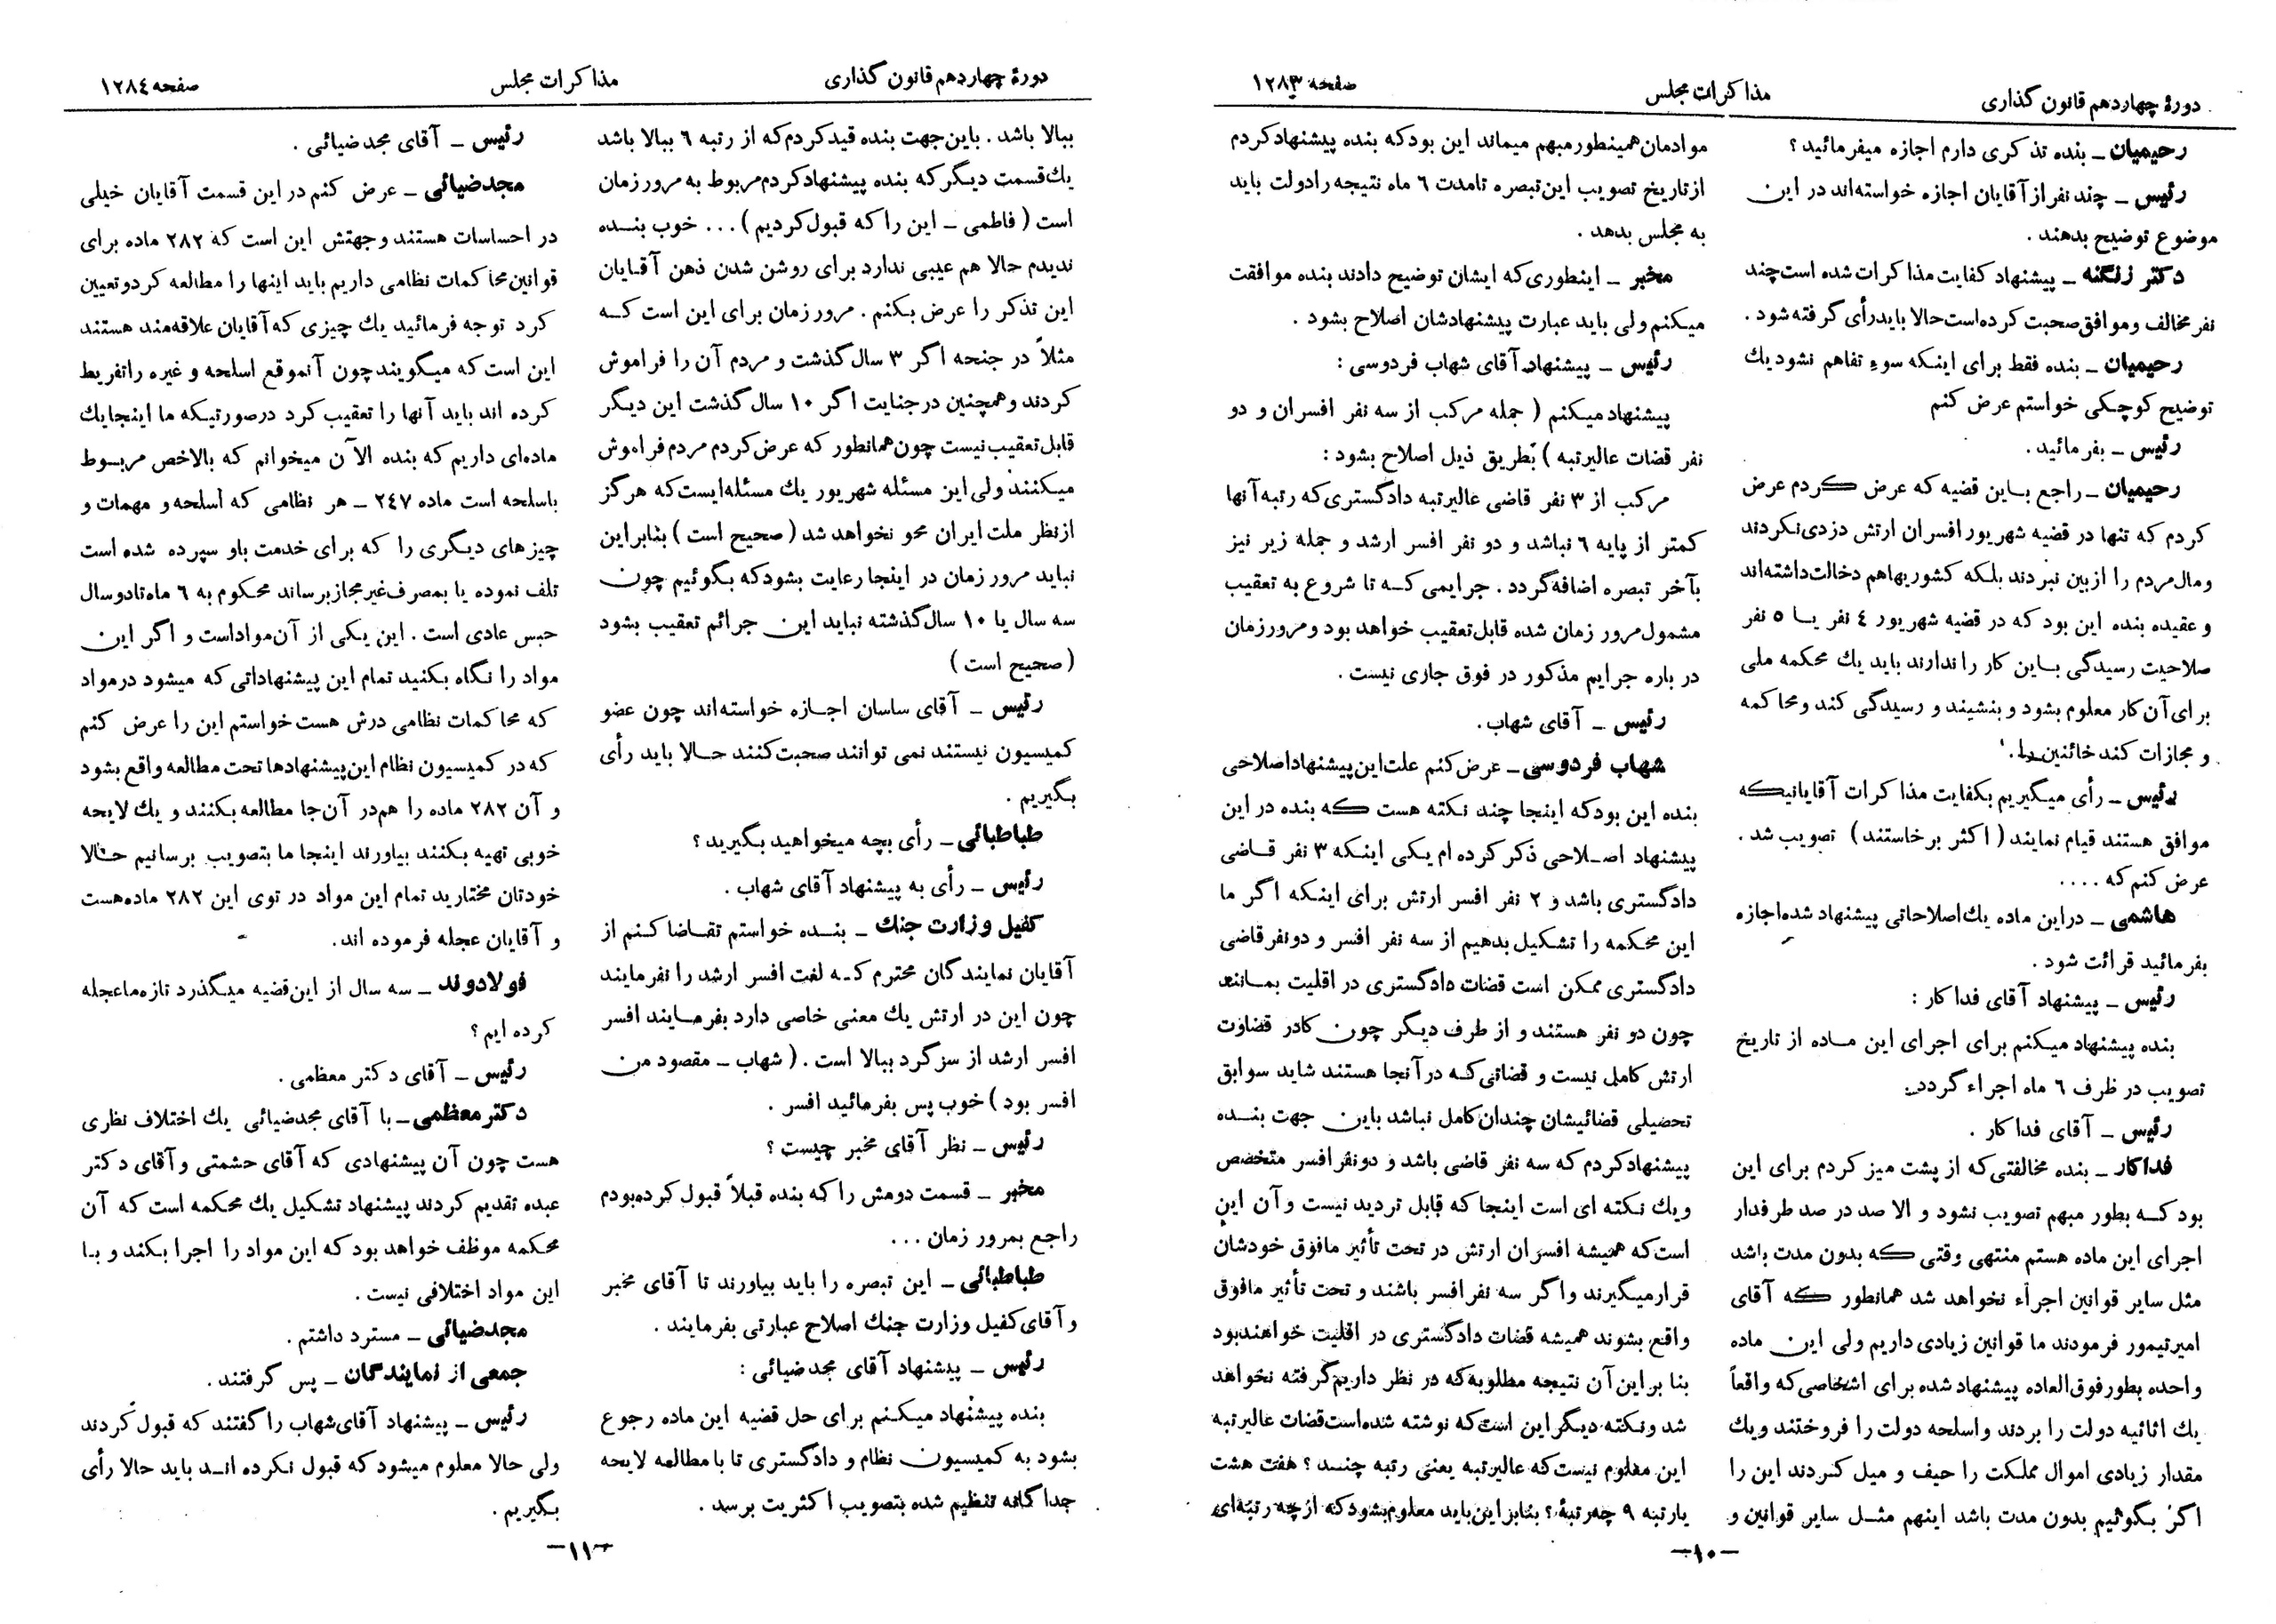 دورۀ چهاردهم قانون گذاری
مذاکرات مجلس
صفحه ۱۲۸۳
رحیمیان ــ بنده تذکری دارم اجازه میفرمائید؟
رئیس ــ چند نفر از آقایان اجازه خواسته‌اند در این
موضوع توضیح بدهند .
دکتر زنگنه ــ پیشنهاد کفایت مذاکرات شده است چند
نفر مخالف و موافق صحبت کرده‌است حالا باید رأی گرفته شود .
رحیمیان ــ بنده فقط برای اینکه سوء تفاهم نشود یك
توضیح کوچکی خواستم عرض کنم
رئیس ــ بفرمائید .
رحیمیان ــ راجع باین قضیه که عرض کردم عرض
کردم که تنها در قضیه شهریور افسران ارتش دزدی نکردند
و مال مردم را از بین نبردند بلکه کشوریهاهم دخالت داشته‌اند
و عقیده بنده این بود که در قضیه شهریور ٤ نفر یا ٥ نفر
صلاحیت رسیدگی باین کار را ندارند باید یك محکمه ملی
برای آن کار معلوم بشود و بنشیند و رسیدگی کند و محاکمه
و مجازات کند خائنین را .
رئیس ــ رأی میگیریم بکفایت مذاکرات آقایانیکه
موافق هستند قیام نمایند ( اکثر برخاستند ) تصویب شد .
عرض کنم که ....
هاشمی ــ دراین ماده یك اصلاحاتی پیشنهاد شده اجازه
بفرمائید قرائت شود .
رئیس ــ پیشنهاد آقای فداکار :
بنده پیشنهاد میکنم برای اجرای این ماده از تاریخ
تصویب در ظرف ٦ ماه اجراء گردد.
رئیس ــ آقای فداکار .
فداکار ــ بنده مخالفتی که از پشت میز کردم برای این
بود که بطور مبهم تصویب نشود و الا صد در صد طرفدار
اجرای این ماده هستم منتهی وقتی که بدون مدت باشد
مثل سایر قوانین اجراء نخواهد شد همانطور که آقای
امیرتیمور فرمودند ما قوانین زیادی داریم ولی این ماده
واحده بطور فوق‌العاده پیشنهاد شده برای اشخاصی که واقعاً
یك اثاثیه دولت را بردند و اسلحه دولت را فروختند و یك
مقدار زیادی اموال مملکت را حیف و میل کردند این را
اگر بگوئیم بدون مدت باشد اینهم مثل سایر قوانین و
موادمان همینطور مبهم میماند این بود که بنده پیشنهاد کردم
از تاریخ تصویب این تبصره تامدت ٦ ماه نتیجه را دولت باید
به مجلس بدهد .
مخبر ــ اینطوری که ایشان توضیح دادند بنده موافقت
میکنم ولی باید عبارت پیشنهادشان اصلاح بشود .
رئیس ــ پیشنهاد آقای شهاب فردوسی :
پیشنهاد میکنم ( جمله مرکب از سه نفر افسران و دو
نفر قضات عالیرتبه ) بطریق ذیل اصلاح بشود :
مرکب از ۳ نفر قاضی عالیرتبه دادگستری که رتبه آنها
کمتر از پایه ٦ نباشد و دو نفر افسر ارشد و جمله زیر نیز
بآخر تبصره اضافه گردد . جرایمی که تا شروع به تعقیب
مشمول مرور زمان شده قابل تعقیب خواهد بود و مرور زمان
در باره جرایم مذکور در فوق جاری نیست .
رئیس ــ آقای شهاب .
شهاب فردوسی ــ عرض کنم علت این پیشنهاد اصلاحی
بنده این بود که اینجا چند نکته هست که بنده در این
پیشنهاد اصلاحی ذکر کرده ام یکی اینکه ۳ نفر قاضی
دادگستری باشد و ۲ نفر افسر ارتش برای اینکه اگر ما
این محکمه را تشکیل بدهیم از سه نفر افسر و دونفر قاضی
دادگستری ممکن است قضات دادگستری در اقلیت بمانند
چون دو نفر هستند و از طرف دیگر چون کادر قضاوت
ارتش کامل نیست و قضاتی که در آنجا هستند شاید سوابق
تحصیلی قضائیشان چندان کامل نباشد باین جهت بنده
پیشنهاد کردم که سه نفر قاضی باشد و دونفر افسر متخصص
ویك نکته ای است اینجا که قابل تردید نیست و آن این
است که همیشه افسران ارتش در تحت تأثیر مافوق خودشان
قرار میگیرند و اگر سه نفر افسر باشند و تحت تأثیر مافوق
واقع بشوند همیشه قضات دادگستری در اقلیت خواهند بود
بنا براین آن نتیجه مطلوبه که در نظر داریم گرفته نخواهد
شد و نکته دیگر این است که نوشته شده است قضات عالیرتبه
این معلوم نیست که عالیرتبه یعنی رتبه چند ؟ هفت هشت
یا رتبه ۹ چه رتبۀ ؟ بنابراین باید معلوم بشود که از چه رتبه‌ای
ـ۱۰ـ
دورۀ چهاردهم قانون گذاری
مذاکرات مجلس
صفحه ۱۲۸٤
ببالا باشد . باین جهت بنده قید کردم که از رتبه ٦ ببالا باشد
یك قسمت دیگر که بنده پیشنهاد کردم مربوط به مرور زمان
است ( فاطمی ــ این را که قبول کردیم ) ... خوب بنده
ندیدم حالا هم عیبی ندارد برای روشن شدن ذهن آقایان
این تذکر را عرض بکنم . مرور زمان برای این است که
مثلاً در جنحه اگر ۳ سال گذشت و مردم آن را فراموش
کردند و همچنین در جنایت اگر ۱۰ سال گذشت این دیگر
قابل تعقیب نیست چون همانطور که عرض کردم مردم فراموش
میکنند ولی این مسئله شهریور یك مسئله‌ایست که هرگز
از نظر ملت ایران محو نخواهد شد ( صحیح است ) بنابراین
نباید مرور زمان در اینجا رعایت بشود که بگوئیم چون
سه سال یا ۱۰ سال گذشته نباید این جرائم تعقیب بشود
( صحیح است )
رئیس ــ آقای ساسان اجازه خواسته‌اند چون عضو
کمیسیون نیستند نمی توانند صحبت کنند حالا باید رأی
بگیریم .
طباطبائی ــ رأی بچه میخواهید بگیرید ؟
رئیس ــ رأی به پیشنهاد آقای شهاب .
کفیل وزارت جنك ــ بنده خواستم تقاضا کنم از
آقایان نمایندگان محترم که لغت افسر ارشد را نفرمایند
چون این در ارتش یك معنی خاصی دارد بفرمایند افسر
افسر ارشد از سرگرد ببالا است . ( شهاب ــ مقصود من
افسر بود ) خوب پس بفرمائید افسر .
رئیس ــ نظر آقای مخبر چیست ؟
مخبر ــ قسمت دومش را که بنده قبلاً قبول کرده‌بودم
راجع بمرور زمان ...
طباطبائی ــ این تبصره را باید بیاورند تا آقای مخبر
و آقای کفیل وزارت جنك اصلاح عبارتی بفرمایند .
رئیس ــ پیشنهاد آقای مجد ضیائی :
بنده پیشنهاد میکنم برای حل قضیه این ماده رجوع
بشود به کمیسیون نظام و دادگستری تا با مطالعه لایحه
جداگانه تنظیم شده بتصویب اکثریت برسد .
رئیس ــ آقای مجد ضیائی .
مجدضیائی ــ عرض کنم در این قسمت آقایان خیلی
در احساسات هستند و جهتش این است که ۲۸۲ ماده برای
قوانین محاکمات نظامی داریم باید اینها را مطالعه کرد و تعیین
کرد توجه فرمائید یك چیزی که آقایان علاقه‌مند هستند
این است که میگویند چون آنموقع اسلحه و غیره را تفریط
کرده اند باید آنها را تعقیب کرد درصورتیکه ما اینجا یك
ماده‌ای داریم که بنده الآن میخوانم که بالاخص مربوط
باسلحه است ماده ۲٤۷ ــ هر نظامی که اسلحه و مهمات و
چیزهای دیگری را که برای خدمت باو سپرده شده است
تلف نموده یا بمصرف غیرمجاز برساند محکوم به ٦ ماه تا دو سال
حبس عادی است . این یکی از آن مواد است و اگر این
مواد را نگاه بکنید تمام این پیشنهاداتی که میشود در مواد
که محاکمات نظامی درش هست خواستم این را عرض کنم
که در کمیسیون نظام این پیشنهادها تحت مطالعه واقع بشود
و آن ۲۸۲ ماده را هم در آن جا مطالعه بکنند و یك لایحه
خوبی تهیه بکنند بیاورند اینجا ما بتصویب برسانیم حالا
خودتان مختارید تمام این مواد در توی این ۲۸۲ ماده هست
و آقایان عجله فرموده اند .
فولادوند ــ سه سال از این قضیه میگذرد تازه ما عجله
کرده ایم ؟
رئیس ــ آقای دکتر معظمی .
دکتر معظمی ــ با آقای مجدضیائی یك اختلاف نظری
هست چون آن پیشنهادی که آقای حشمتی و آقای دکتر
عبده تقدیم کردند پیشنهاد تشکیل یك محکمه است که آن
محکمه موظف خواهد بود که این مواد را اجرا بکند و با
این مواد اختلافی نیست .
مجدضیائی ــ مسترد داشتم .
جمعی از نمایندگان ــ پس گرفتند .
رئیس ــ پیشنهاد آقای شهاب را گفتند که قبول کردند
ولی حالا معلوم میشود که قبول نکرده اند باید حالا رأی
بگیریم .
ـ۱۱ـ